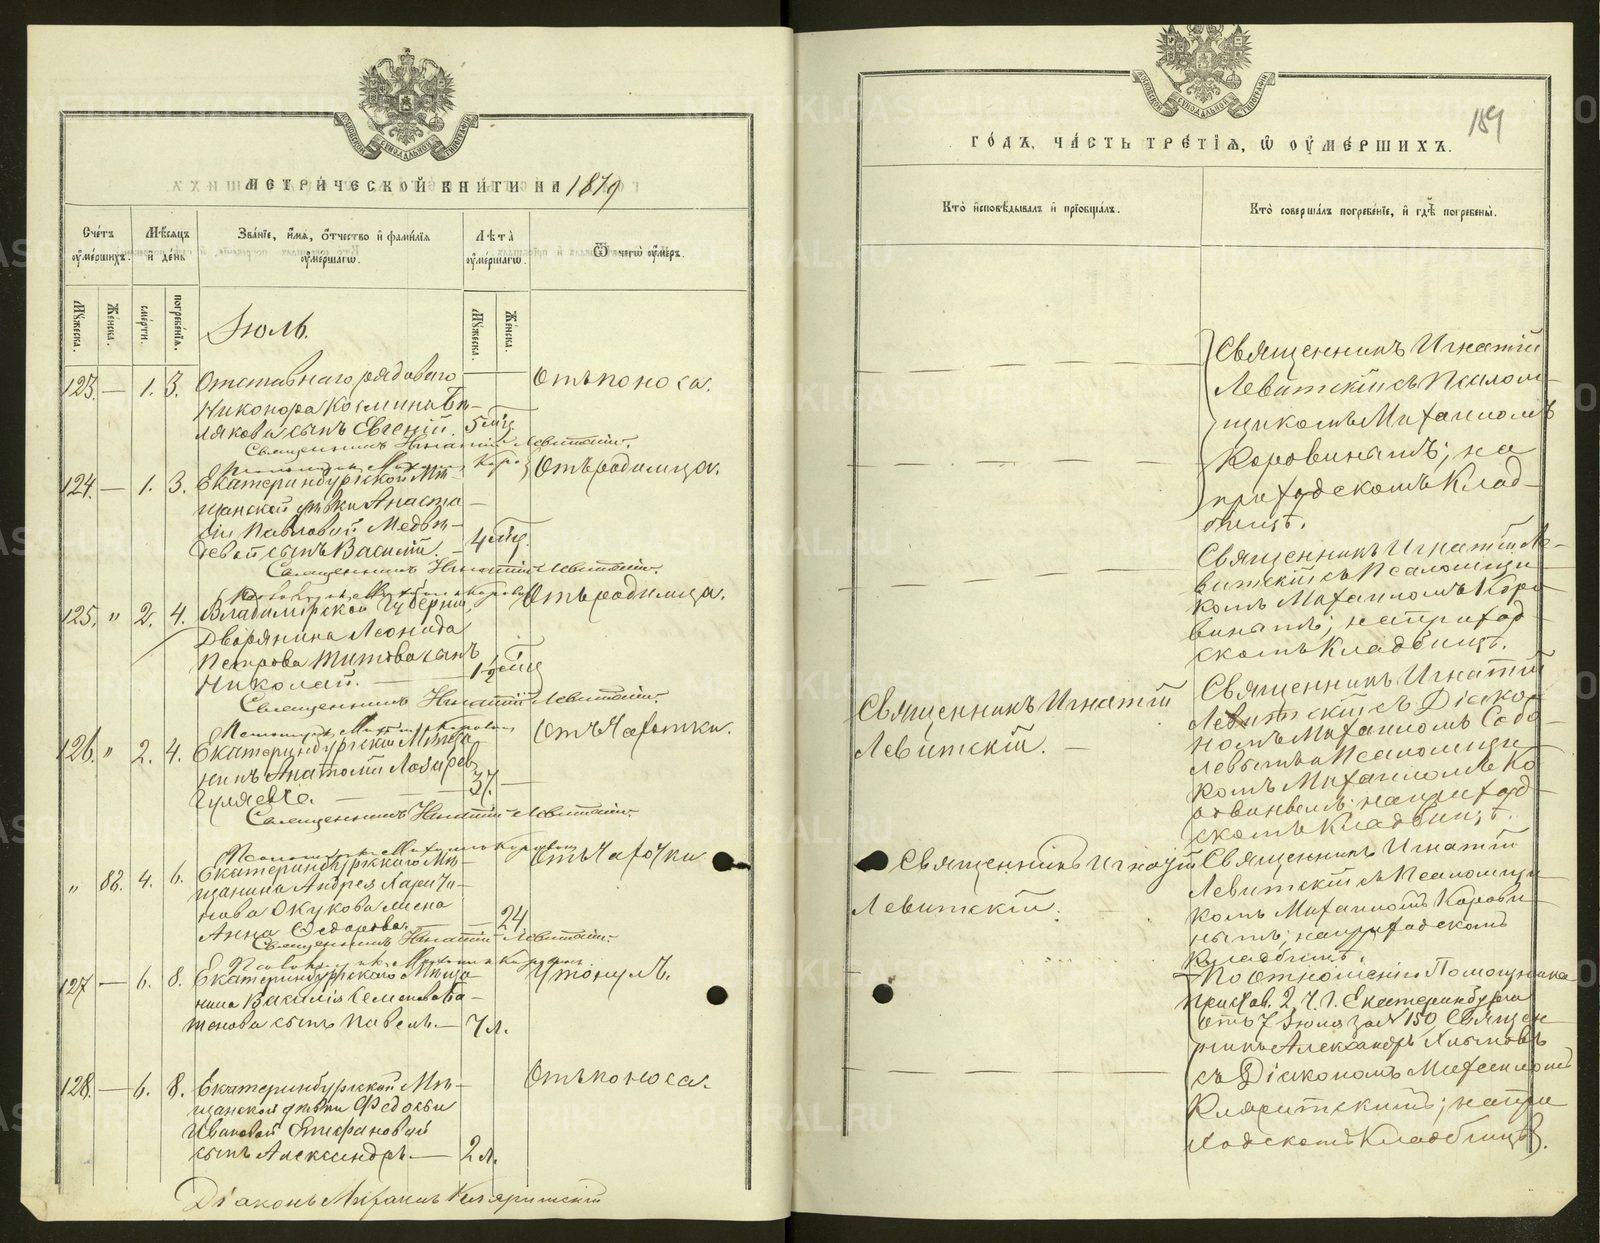 МЕТРИЧЕСКОЙ КНИГИ НА 1879
Счетъ умершихъ.
Мѣсяцъ и день
Званіе, имя, отчество и фамилія умершаго.
Лѣта умершаго.
Отъ чего умеръ.
Мужеска.
Женска.
смерти.
погребенія.
Мужеска.
Женска.
Іюль.
123. — 1. 3. Отставнаго рядоваго
Никонора Космина Бѣ-
лякова сынъ Евгеній. 5 мѣц
Отъ поноса.
Священникъ Игнатій Левитскій.
124. — 1. 3. Екатеринбургской Мѣ-
щанской дѣвки Анаста-
сіи Павловой Медвѣ-
девой сынъ Василій. — 4 мѣц.
Отъ родимца.
Священникъ Игнатій Левитскій.
125. " 2. 4. Владимірской Губерніи,
Дворянина Леонида
Петрова Титова сынъ
Николай. — 1½ мѣц
Отъ родимца.
Священникъ Игнатій Левитскій.
126. " 2. 4. Екатеринбургскій Мѣща-
нинъ Анатолій Лазарев
Гуляевъ. — 37. —
Отъ Чахотки.
Священникъ Игнатій Левитскій.
" 82. 4. 6. Екатеринбургскаго Мѣ-
щанина Андрея Харито-
нова Окукова жена
Анна Федорова. — 24
Отъ Чахотки
Священникъ Игнатій Левитскій.
127 — 6. 8. Екатеринбургскаго Мѣща-
нина Василія Семенова Ба-
женова сынъ Павелъ. — 7 л.
Утонулъ.
128. — 6. 8. Екатеринбургской Мѣ-
щанской дѣвки Федосьи
Ивановой Епифановой
сынъ Александръ. — 2 л.
Отъ поноса.
Діаконъ Михаилъ Кляритскій
189
ГОДЪ, ЧАСТЬ ТРЕТІЯ, Ѡ ОУМЕРШИХЪ.
Кто исповѣдывалъ и пріобщалъ.
Кто совершалъ погребеніе, и гдѣ погребены.
Священникъ Игнатій
Левитскій съ Псалом-
щикомъ Михаиломъ
Коровинымъ; на
приходскомъ Клад-
бищѣ.
Священникъ Игнатій Ле-
витскій съ Псаломщи-
комъ Михаиломъ Коро-
винымъ; на приход-
скомъ Кладбищѣ.
Священникъ Игнатій
Левитскій. —
Священникъ Игнатій
Левитскій съ Діако-
номъ Михаиломъ Собо-
левымъ и Псаломщи-
комъ Михаиломъ Ко-
ровинымъ; на приход-
скомъ Кладбищѣ.
Священникъ Игнатій
Левитскій.
Священникъ Игнатій
Левитскій съ Псаломщи-
комъ Михаиломъ Корови-
нымъ; на приходскомъ
Кладбищѣ.
По отношенію Помощника
Пристав. 2, Ч. г. Екатеринбурга
отъ 7 Іюля за № 150, Священ-
никъ Александръ
съ Діакономъ Михаиломъ
Кляритскимъ; на при-
ходскомъ Кладбищѣ.